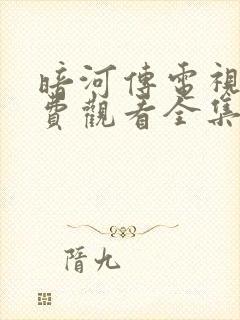 暗河傳電視
費觀看全集
隋九